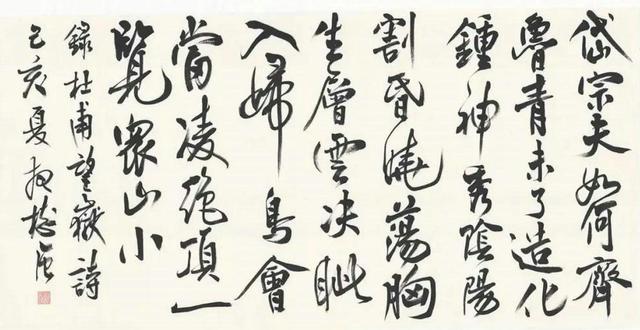 岱宗夫如何齊
魯青未了造化
鍾神秀陰陽
割昏曉蕩胸
生層雲决眦
入歸鳥會
當凌絶頂一
覽衆山小
録杜甫望嶽詩
己亥夏